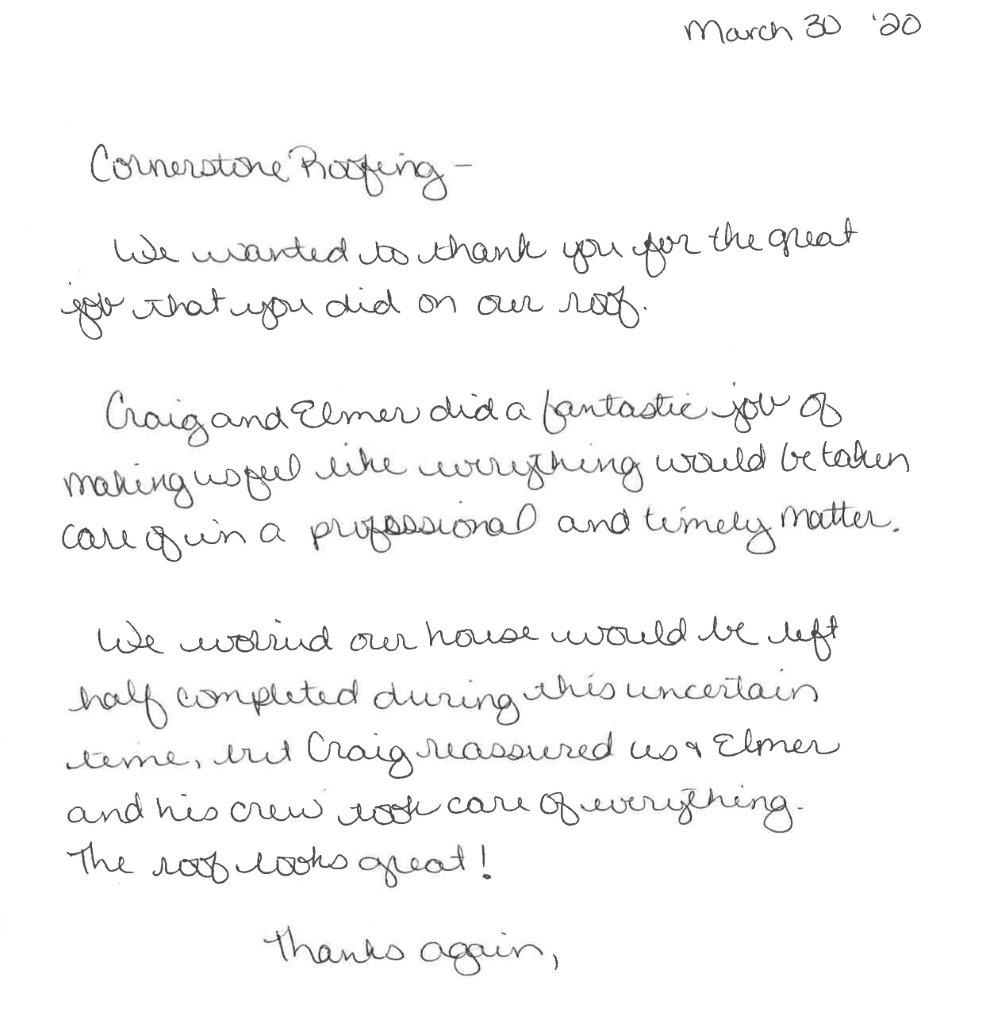 March 30 '20
Cornerstone Roofing -
We wanted to thank you for the great
job that you did on our roof.
Craig and Elmer did a fantastic job of
making us feel like everything would be taken
care of in a professional and timely matter.
We worried our house would be left
half completed during this uncertain
time, but Craig reassured us & Elmer
and his crew took care of everything.
The roof looks great!
Thanks again,